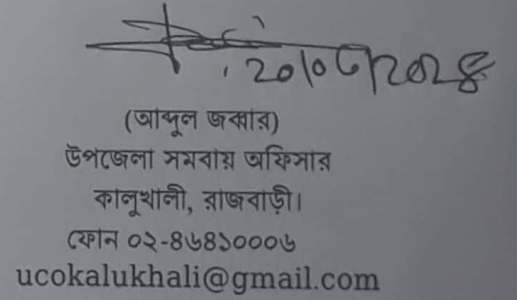 ২০/০৫/২০২৪
(আব্দুল জব্বার)
উপজেলা সমবায় অফিসার
কালুখালী, রাজবাড়ী।
ফোন ০২-৪৬৪১০০০৬
ucokalukhali@gmail.com